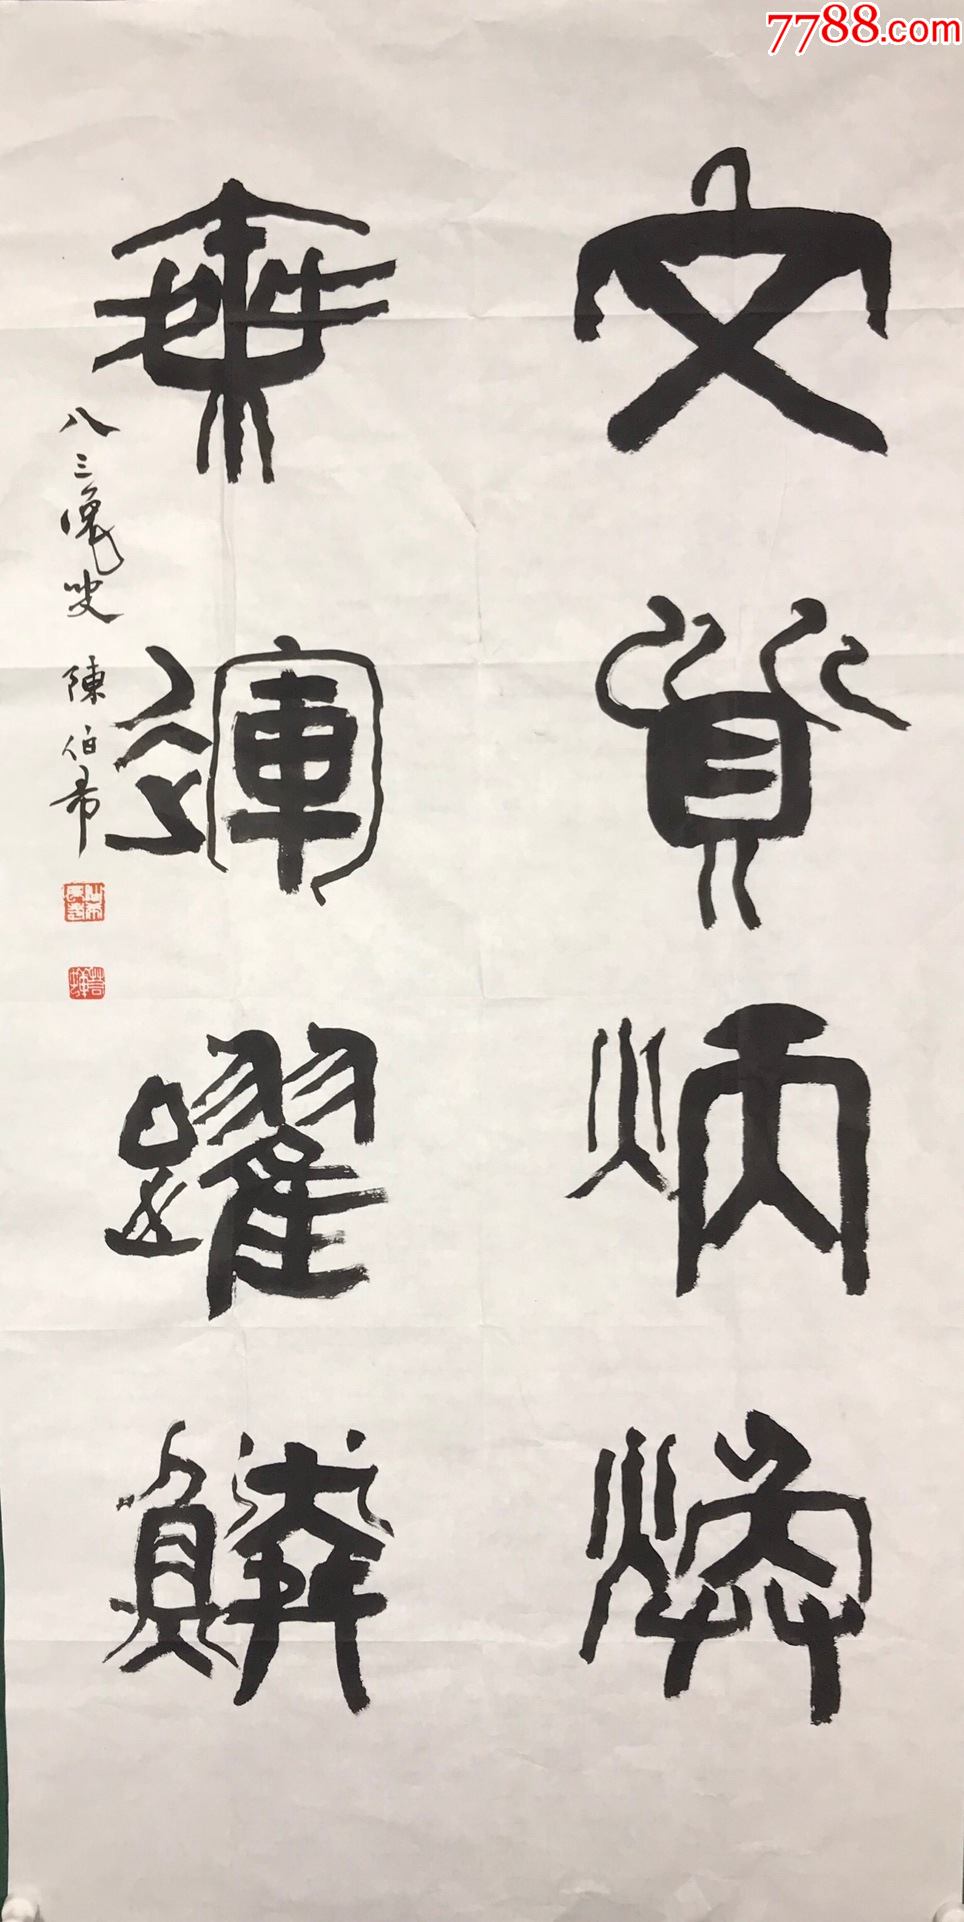 7788.com
文質炳煥
乘運躍鱗
八三叟 陳伯希